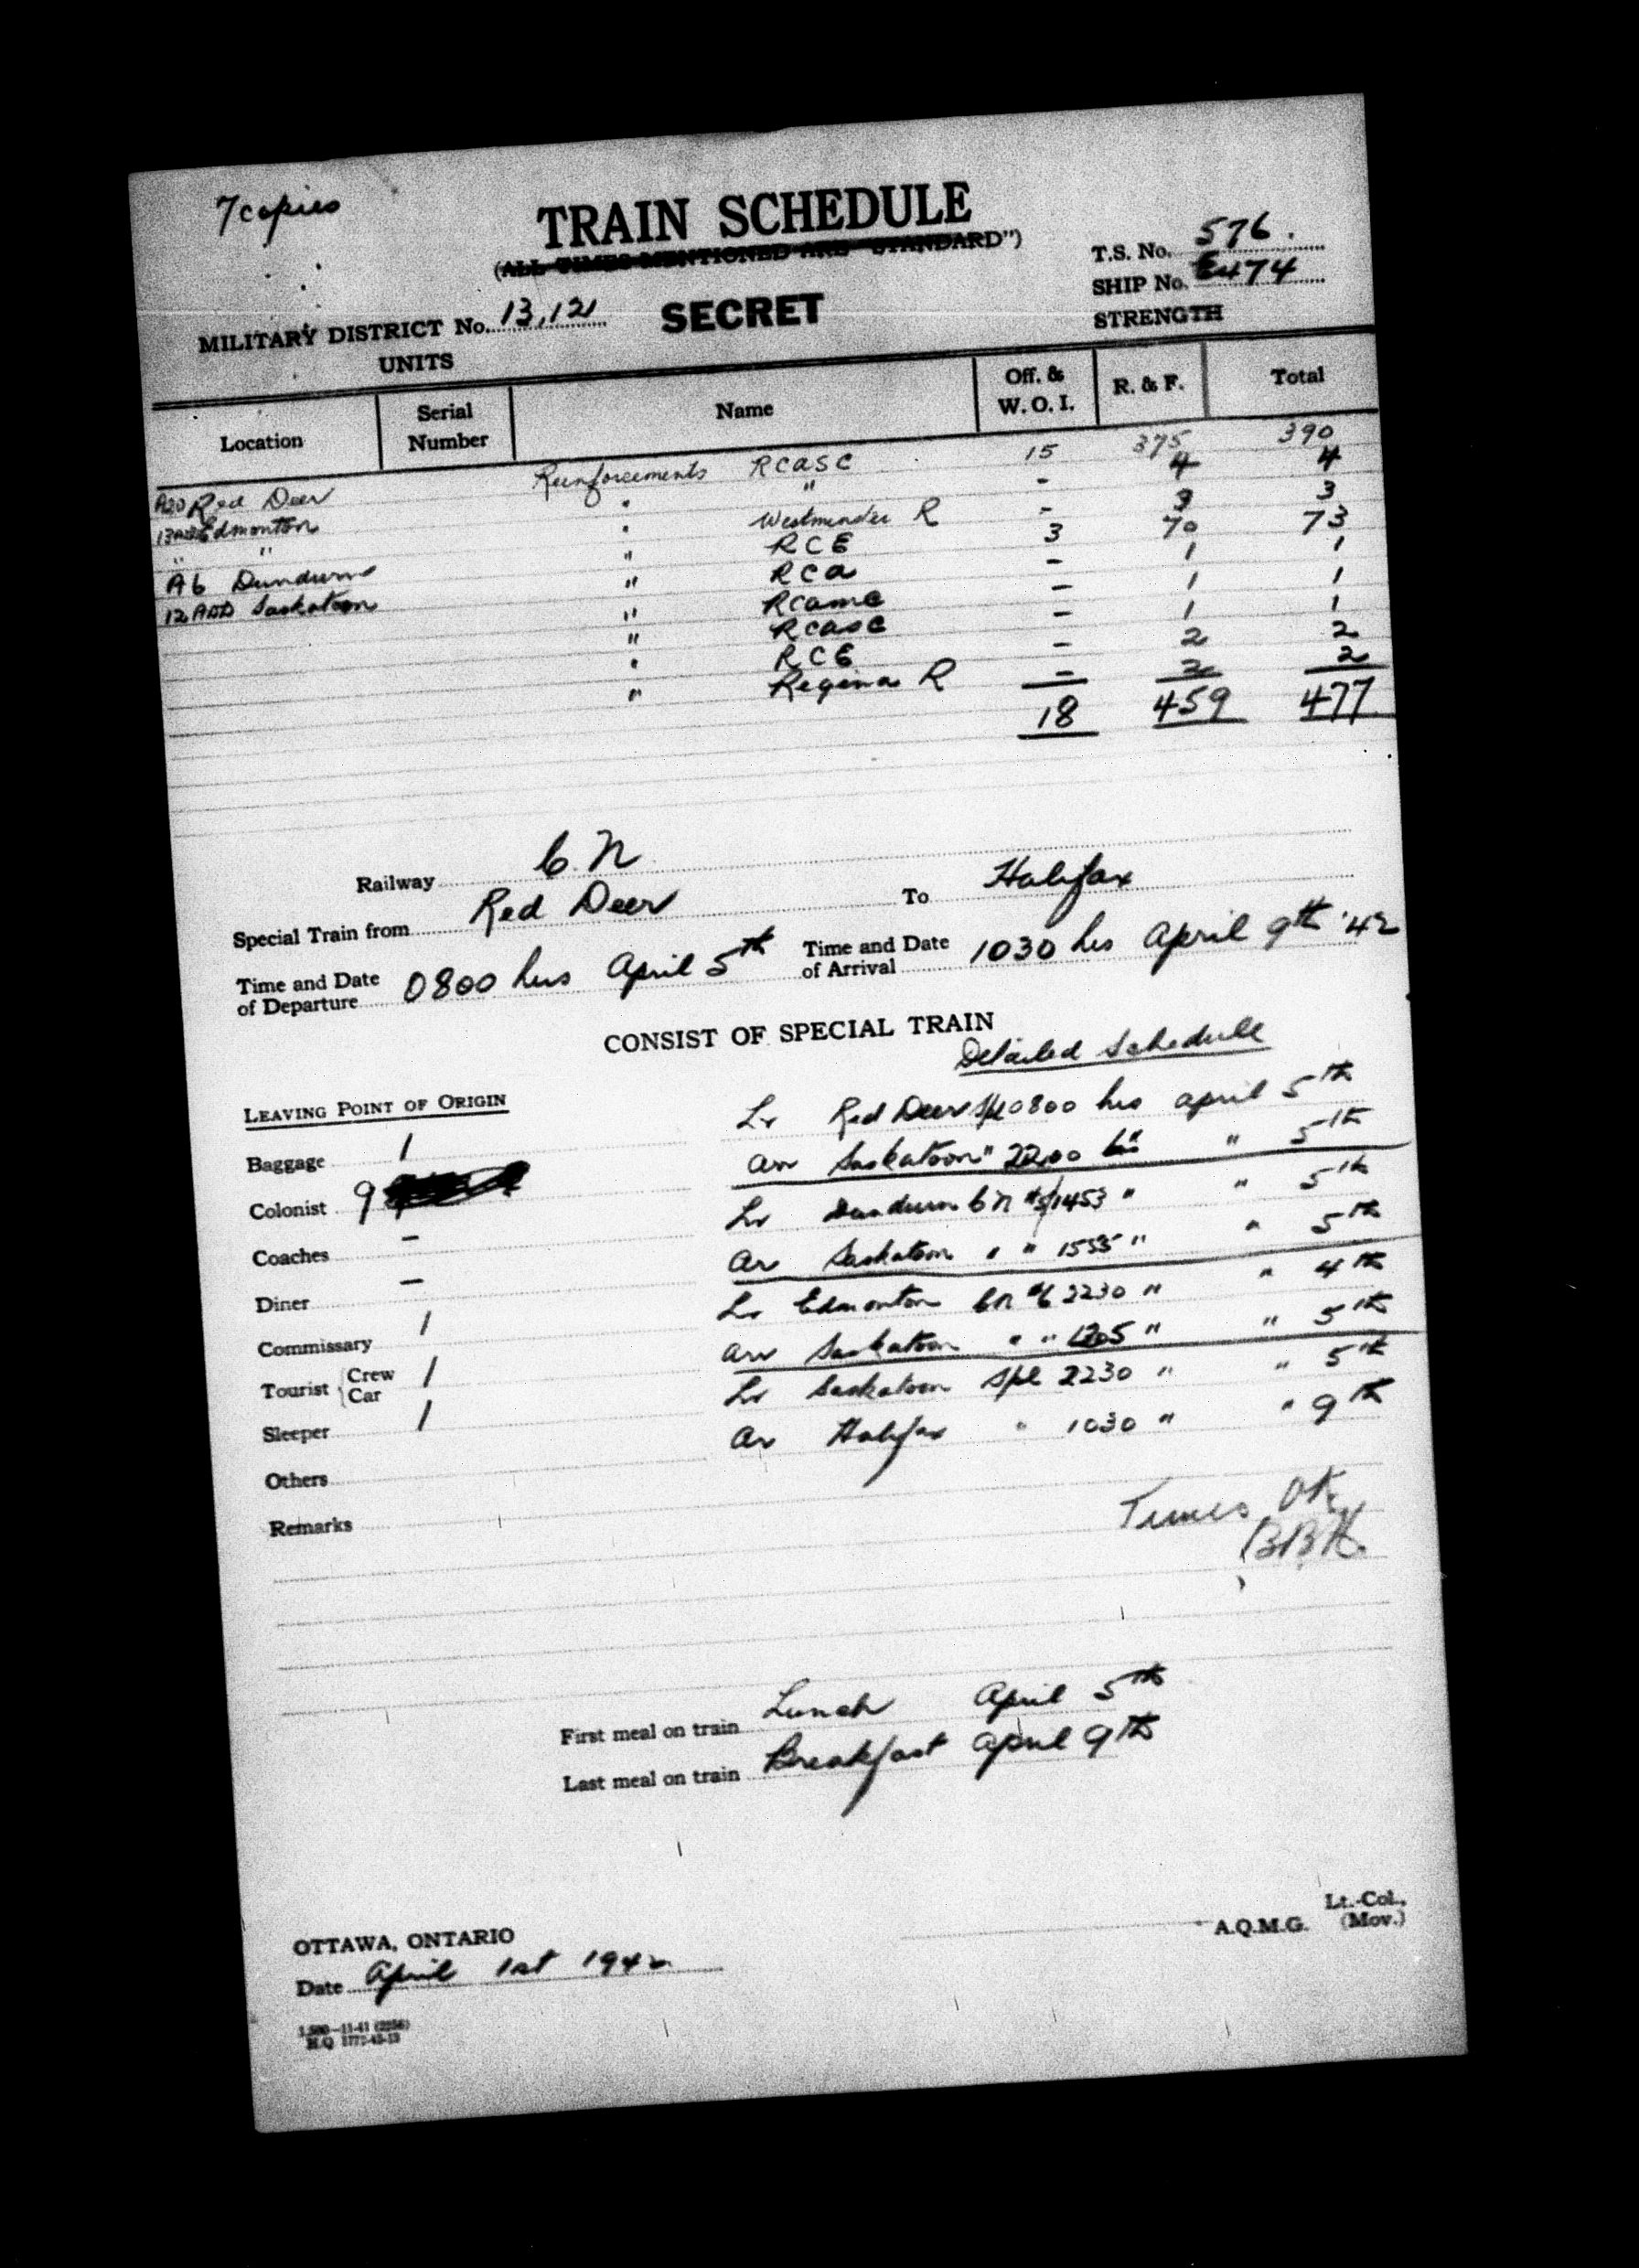 7 copies
TRAIN SCHEDULE
(ALL TIMES MENTIONED ARE "STANDARD")
T.S. No. 576.
SHIP No. E474
MILITARY DISTRICT No. 13,12
SECRET
STRENGTH
UNITS
Location Serial Number Name Off. & W. O. I. R. & F. Total
A20 Red Deer Reinforcements RCASC 15 375 390
Edmonton " " - 4 4
" " " Westminster R - 3 3
A6 Dundurn " RCE 3 70 73
12 ADD Saskatoon " RCA - 1 1
" RCAMC - 1 1
" RCASC - 1 1
" RCE - 2 2
" Regina R - 2 2
18 459 477
Railway C. N
Special Train from Red Deer To Halifax
Time and Date of Departure 0800 hrs April 5th Time and Date of Arrival 1030 hrs April 9th '42
CONSIST OF SPECIAL TRAIN
Detailed Schedule
LEAVING POINT OF ORIGIN
Lv Red Deer Spl 0800 hrs April 5th
Baggage 1
Arr Saskatoon " 2200 hrs " 5th
Colonist 9
Lv Dundurn CN 1453 " " 5th
Coaches -
Ar Saskatoon " " 1535 " " 5th
Diner -
Lv Edmonton CN #6 2230 " " 4th
Commissary 1
Arr Saskatoon " " 1205 " " 5th
Tourist { Crew Car 1
Lv Saskatoon Spl 2230 " " 5th
Sleeper 1
Ar Halifax " 1030 " " 9th
Others
Remarks
Times OK.
BBH.
First meal on train Lunch April 5th
Last meal on train Breakfast April 9th
Lt.-Col.,
A.Q.M.G. (Mov.)
OTTAWA, ONTARIO
Date April 1st 1942
1,500—11-41 (2256)
H.Q. 1772-43-13